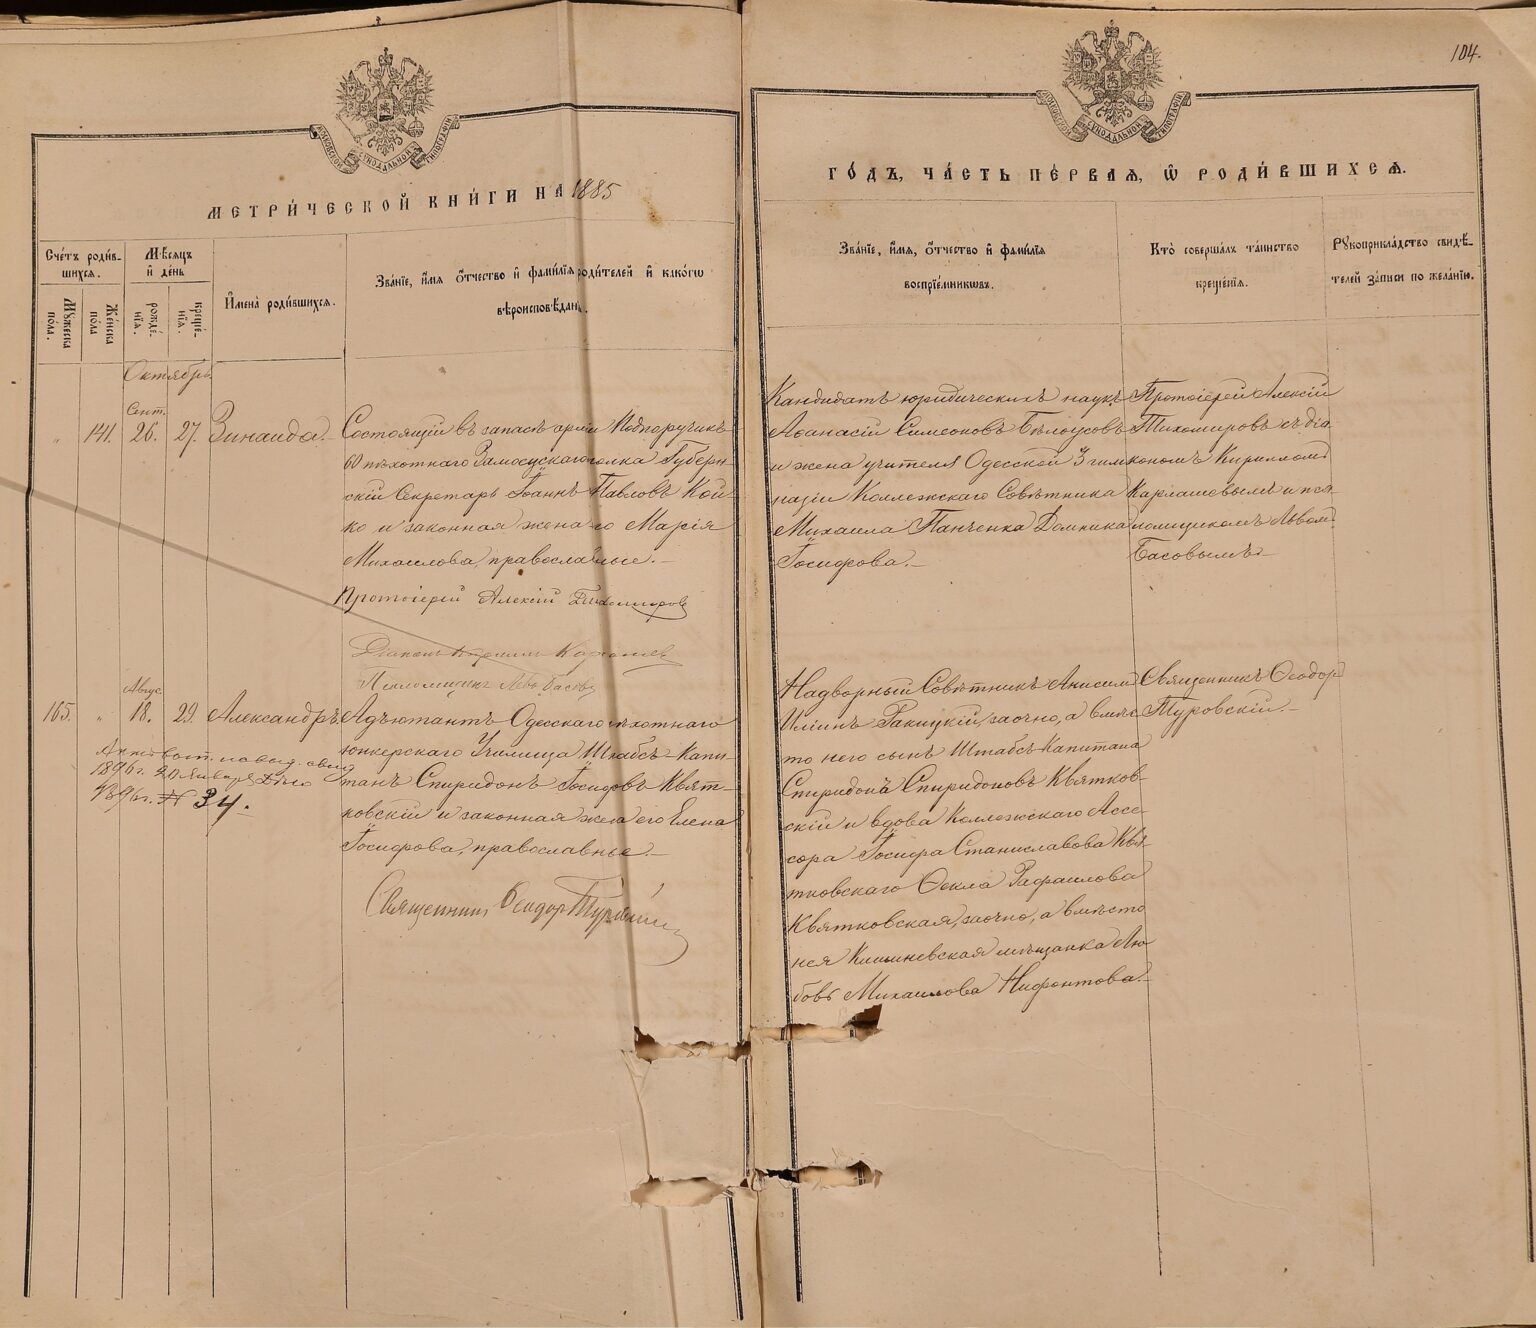 104.
МОСКОВСКОЙ СѴНОДАЛЬНОЙ ТИПОГРАФІИ
МОСКОВСКОЙ СѴНОДАЛЬНОЙ ТИПОГРАФІИ
МЕТРИ́ЧЕСКОЙ КНИ́ГИ НА 1885
ГО́ДЪ, ЧА́СТЬ ПЕ́РВАЯ, Ѿ РОДИ́ВШИХСЯ.
Сче́тъ роди́в-
шихся.
Мѣсяцъ
и҆ де́нь
Му́жеска
пола.
Же́нска
пола
рожде́-
нїя.
креще́-
нїя.
И҆мена̀ роди́вшихся.
Зва́нїе, и҆́мя ѻ҆́тчество и҆ фами́лїя роди́телей и҆ како́гѡ
вѣроисповѣданїя.
Зва́нїе, и҆́мя, ѻ҆́тчество и҆ фами́лїя
воспрїе́мникѡвъ.
Кто̀ соверша́лъ та́инство
креще́нїя.
Рꙋкоприкла́дство свидѣ́-
телей за́писи по жела́нїю.
Октябрь.
Сент.
„ 141. 26. 27. Зинаида.
Состоящій въ запасѣ арміи Подпоручикъ
60 пѣхотнаго Замосцскаго полка Губерн-
скій Секретарь Іоаннъ Павловъ Кой-
ко и законная жена его Марія
Михаилова, православные.
Протоіерей Алексій Тихомировъ
Діаконъ Кириллъ Карпашевъ
Псаломщикъ Левъ Басовъ
Кандидатъ юридическихъ наукъ
Аѳанасій Симеоновъ Бѣлоусовъ
и жена учителя Одесской 3 гим-
назіи Коллежскаго Совѣтника
Михаила Панченка Домника
Іосифова.
Протоіерей Алексій
Тихомировъ съ діа-
кономъ Кирилломъ
Карпашевымъ и пса-
ломщикомъ Львомъ
Басовымъ
Авгус.
165. „ 18. 29. Александръ
1896 г. 20 Января
1896 г. № 34.
Адъютантъ Одесскаго пѣхотнаго
юнкерскаго Училища Штабсъ-Капи-
танъ Спиридонъ Іосифовъ Квят-
ковскій и законная жена его Елена
Іосифова, православные.
Священникъ Ѳеодоръ Туровскій
Надворный Совѣтникъ Анисим
Иліинъ Ракицкій, заочно, а вмѣс-
то него сынъ Штабсъ-Капитана
Спиридона Спиридоновъ Квятков-
скій и вдова Коллежскаго Ассе-
сора Іосифа Станиславова Квя-
тковскаго Ѳекла Рафаилова
Квятковская, заочно, а вмѣсто
нея Кишиневская мѣщанка Лю-
бовь Михаилова Нифонтова.
Священникъ Ѳеодоръ
Туровскій.